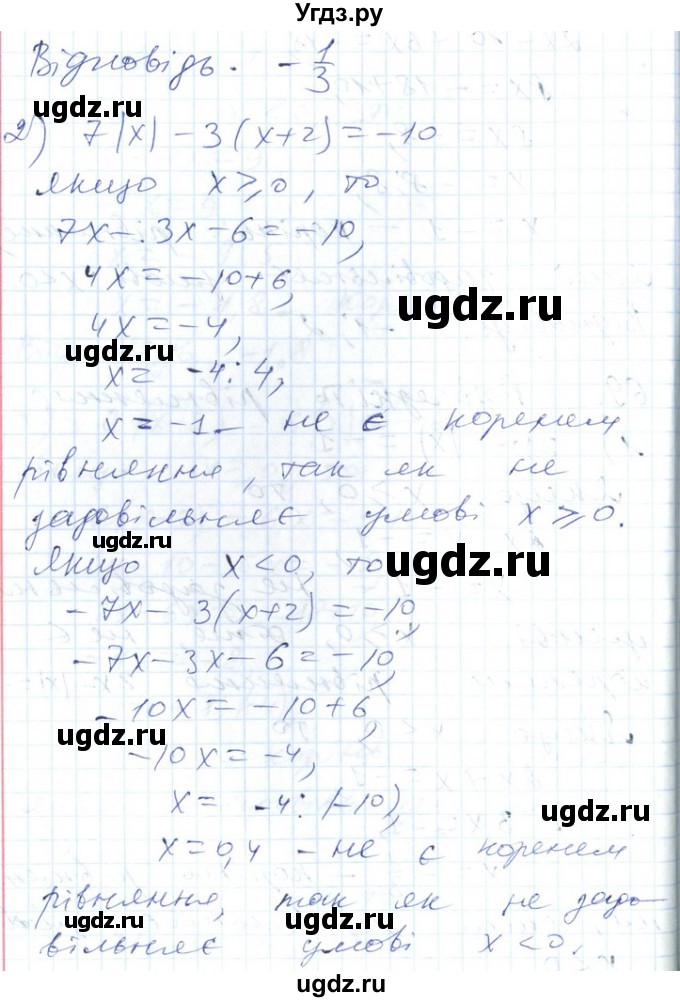 Угдз.ру
Відповідь. -1/3
ugdz.ru
2) 7|x| - 3(x+2) = -10
якщо x ⩾ 0, то
ugdz.ru
7x - 3x - 6 = -10,
4x = -10+6,
ugdz.ru
4x = -4,
ugdz.ru
x = -4 : 4,
x = -1 - не є коренем
рівняння, так як не
задовільняє умові x ⩾ 0.
ugdz.ru
якщо x < 0, то
ugdz.ru
-7x - 3(x+2) = -10,
ugdz.ru
-7x - 3x - 6 = -10,
-10x = -10+6,
ugdz.ru
-10x = -4,
x = -4 : (-10),
ugdz.ru
x = 0,4 - не є коренем
рівняння, так як не задо-
ugdz.ru
вільняє умові x < 0.
ugdz.ru
Угдз.ру